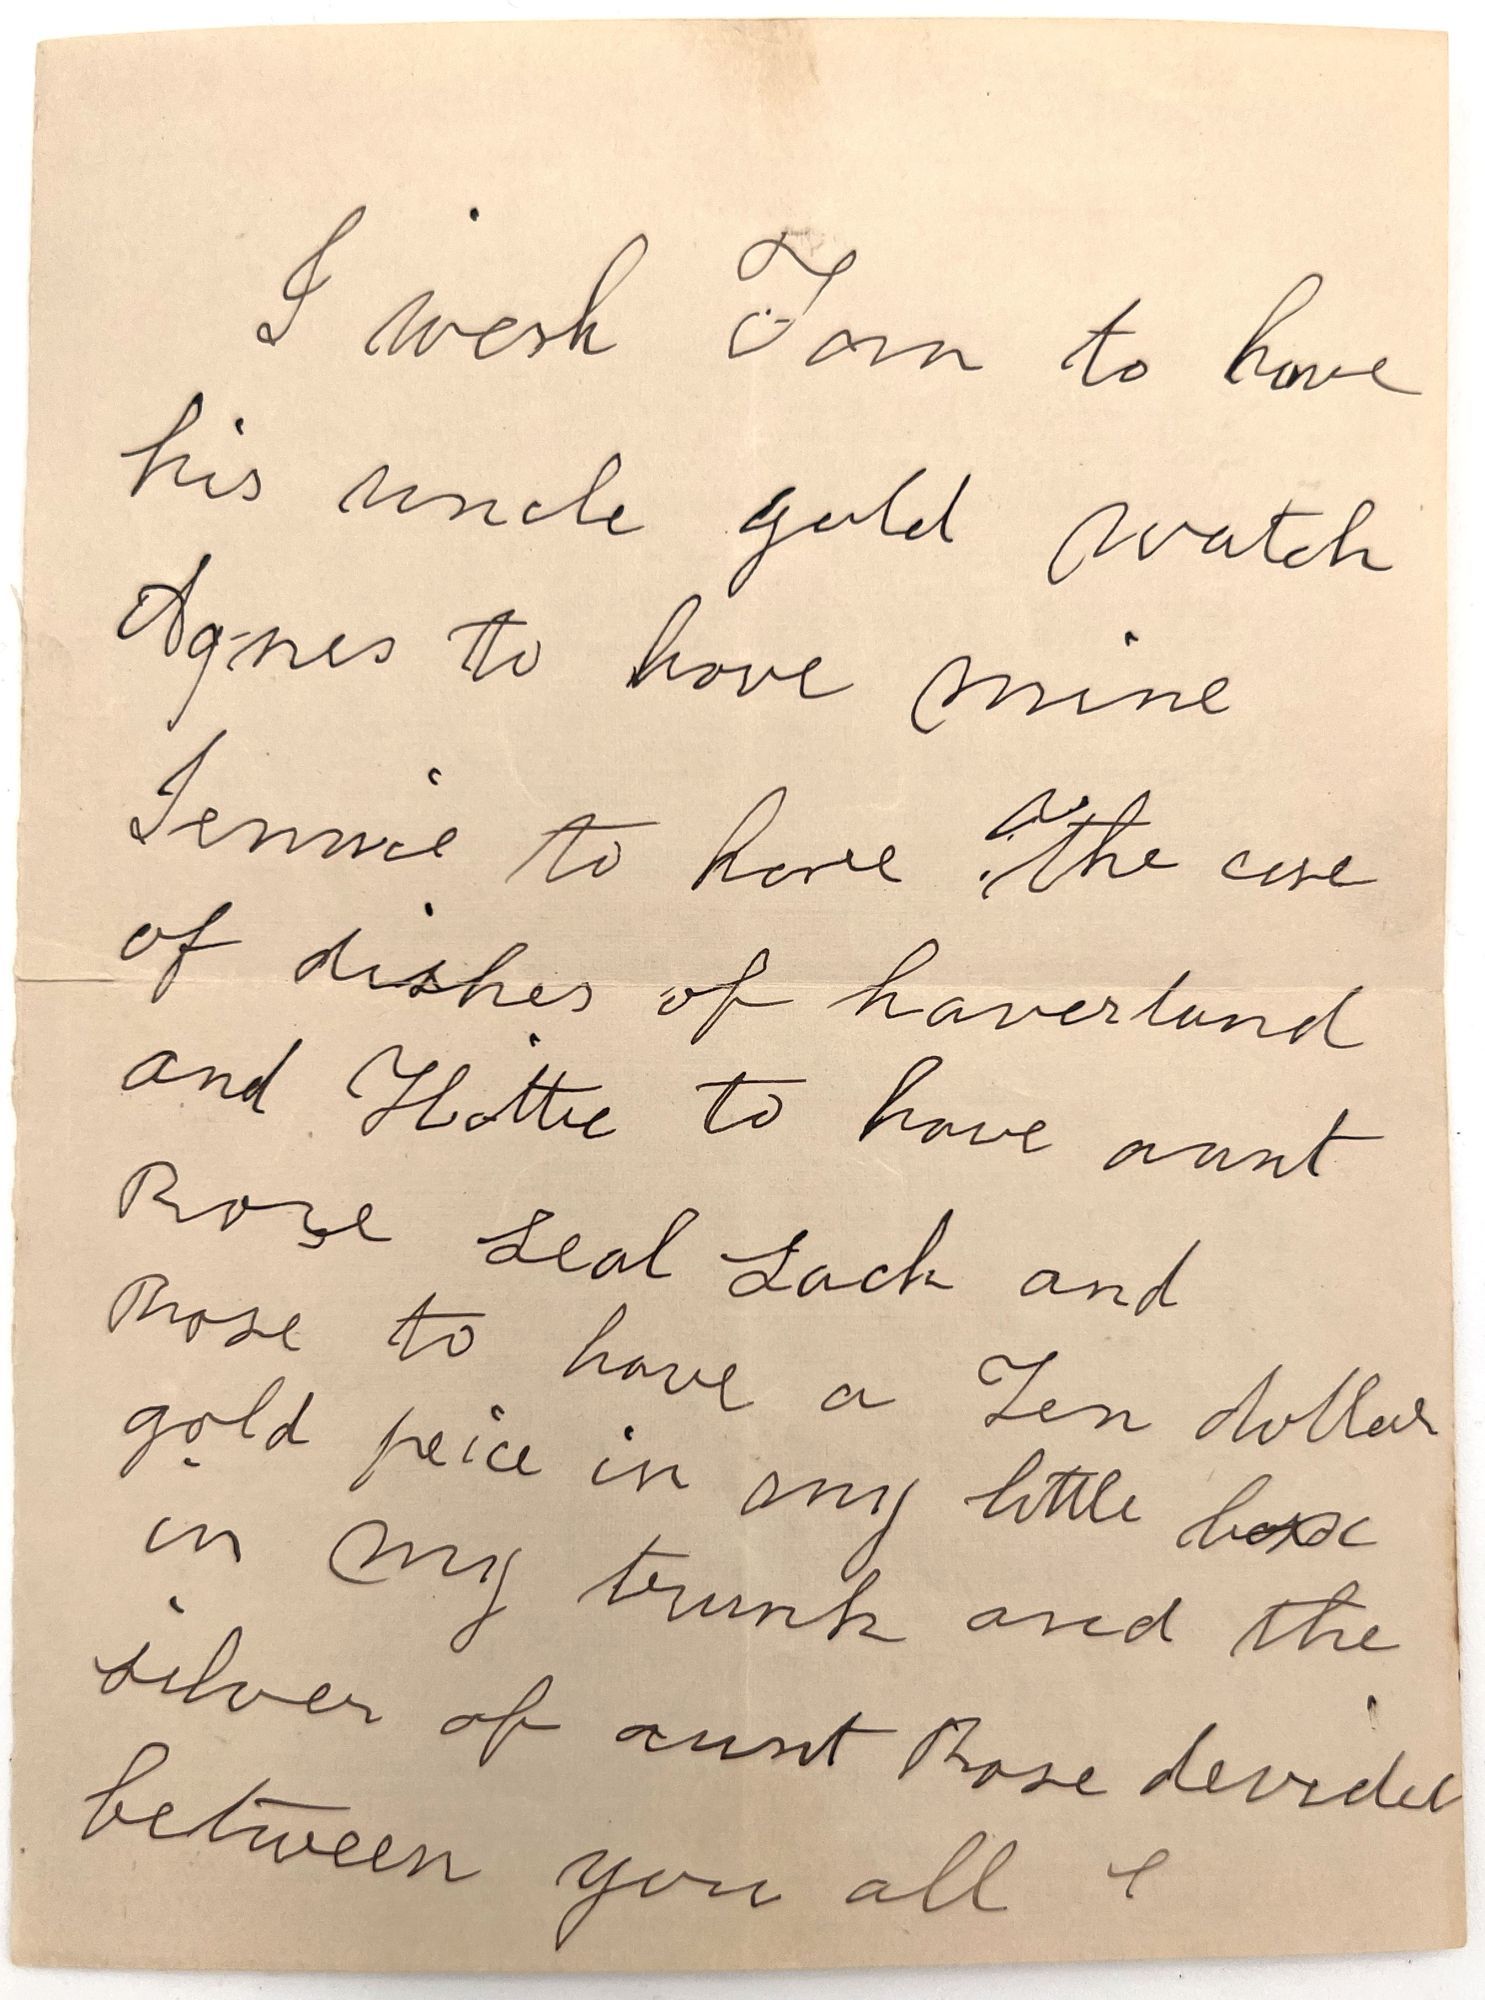 I wesh Tom to have
his uncle gold watch
Agnes to have mine
Jennie to have the case
of dishes of haverland
and Hattie to have aunt
Rose Seal Sack and
Rose to have a Ten dollar
gold peice in my little box
in my trunk and the
silver of aunt Rose devided
between you all